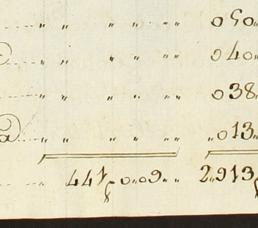 „ „ „ „ „ „ 050
„ „ „ „ „ „ 040
„ „ „ „ „ „ 038
„ „ „ „ „ „ 013
441$009 „ 2„913$